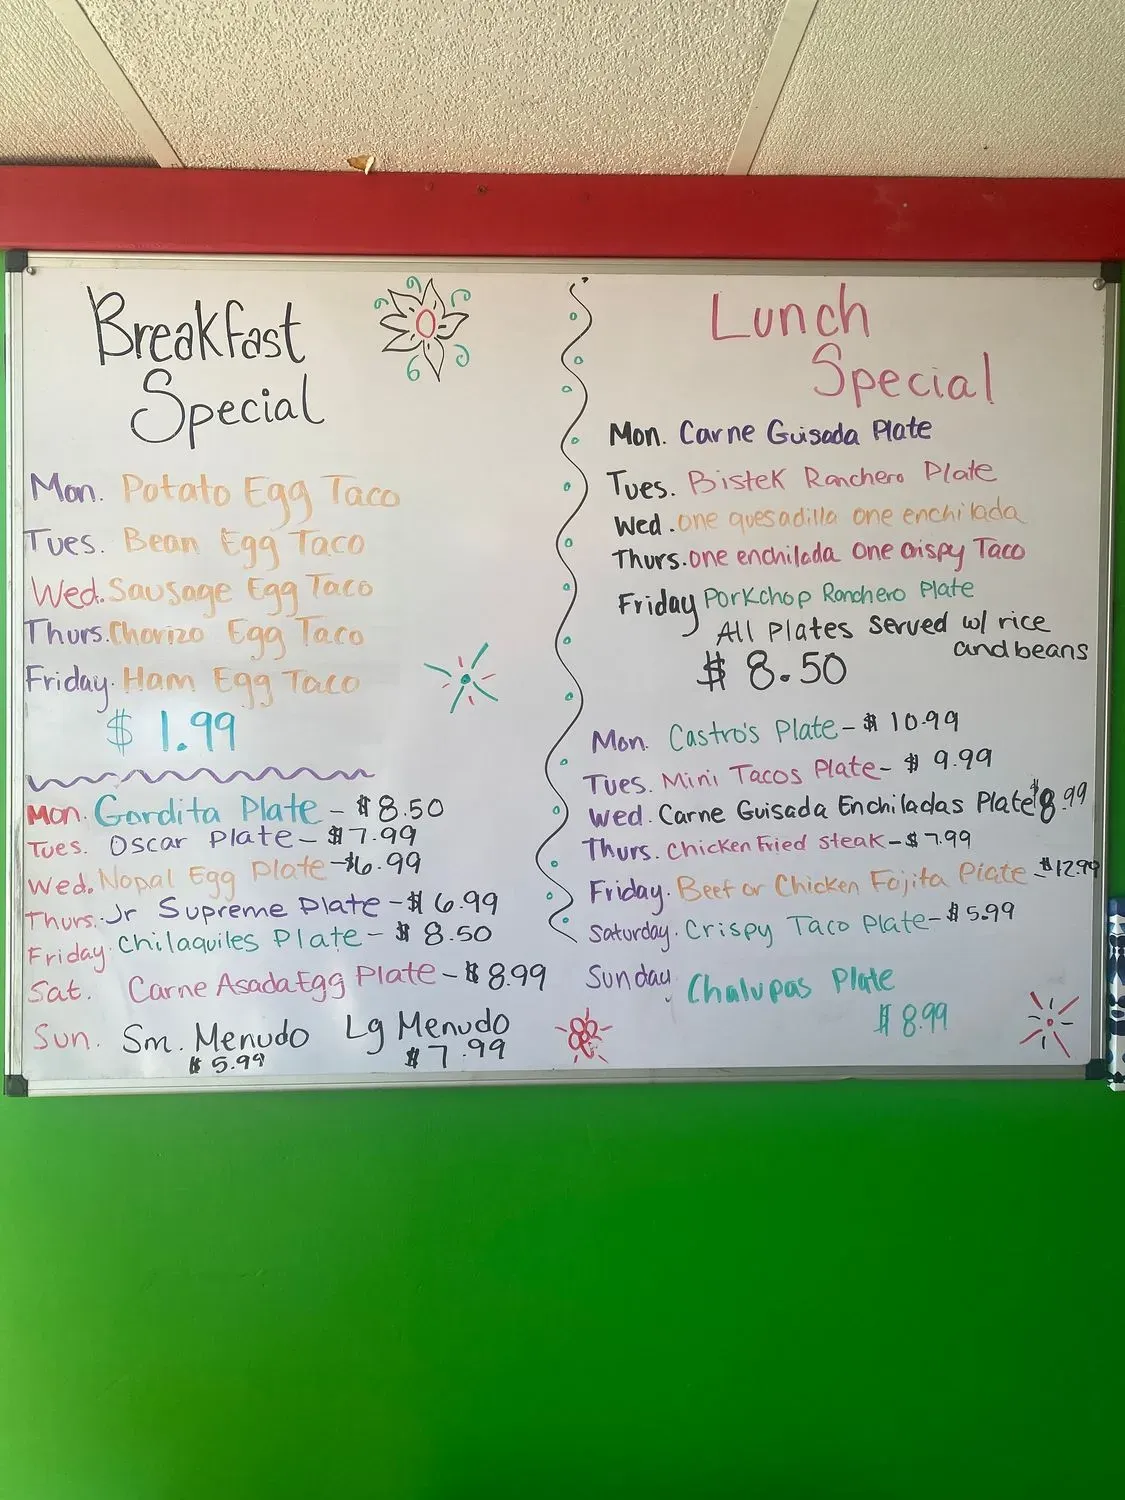 Breakfast
Special
Mon. Potato Egg Taco
Tues. Bean Egg Taco
Wed. Sausage Egg Taco
Thurs. Chorizo Egg Taco
Friday. Ham Egg Taco
$ 1.99
Mon. Gordita Plate - $8.50
Tues. Oscar Plate - $7.99
Wed. Nopal Egg Plate - $6.99
Thurs. Jr Supreme Plate - $6.99
Friday. Chilaquiles Plate - $ 8.50
Sat. Carne Asada Egg Plate - $8.99
Sun. Sm. Menudo Lg Menudo
$5.99 $7.99
Lunch
Special
Mon. Carne Guisada Plate
Tues. Bistek Ranchero Plate
Wed. one quesadilla one enchilada
Thurs. one enchilada one crispy Taco
Friday Porkchop Ranchero Plate
All plates served w/ rice
and beans
$ 8.50
Mon. Castro's Plate - $ 10.99
Tues. Mini Tacos Plate - $ 9.99
Wed. Carne Guisada Enchiladas Plate $8.99
Thurs. Chicken Fried steak - $7.99
Friday. Beef or Chicken Fajita Plate - $12.99
Saturday. Crispy Taco Plate - $5.99
Sunday. Chalupas Plate
$ 8.99